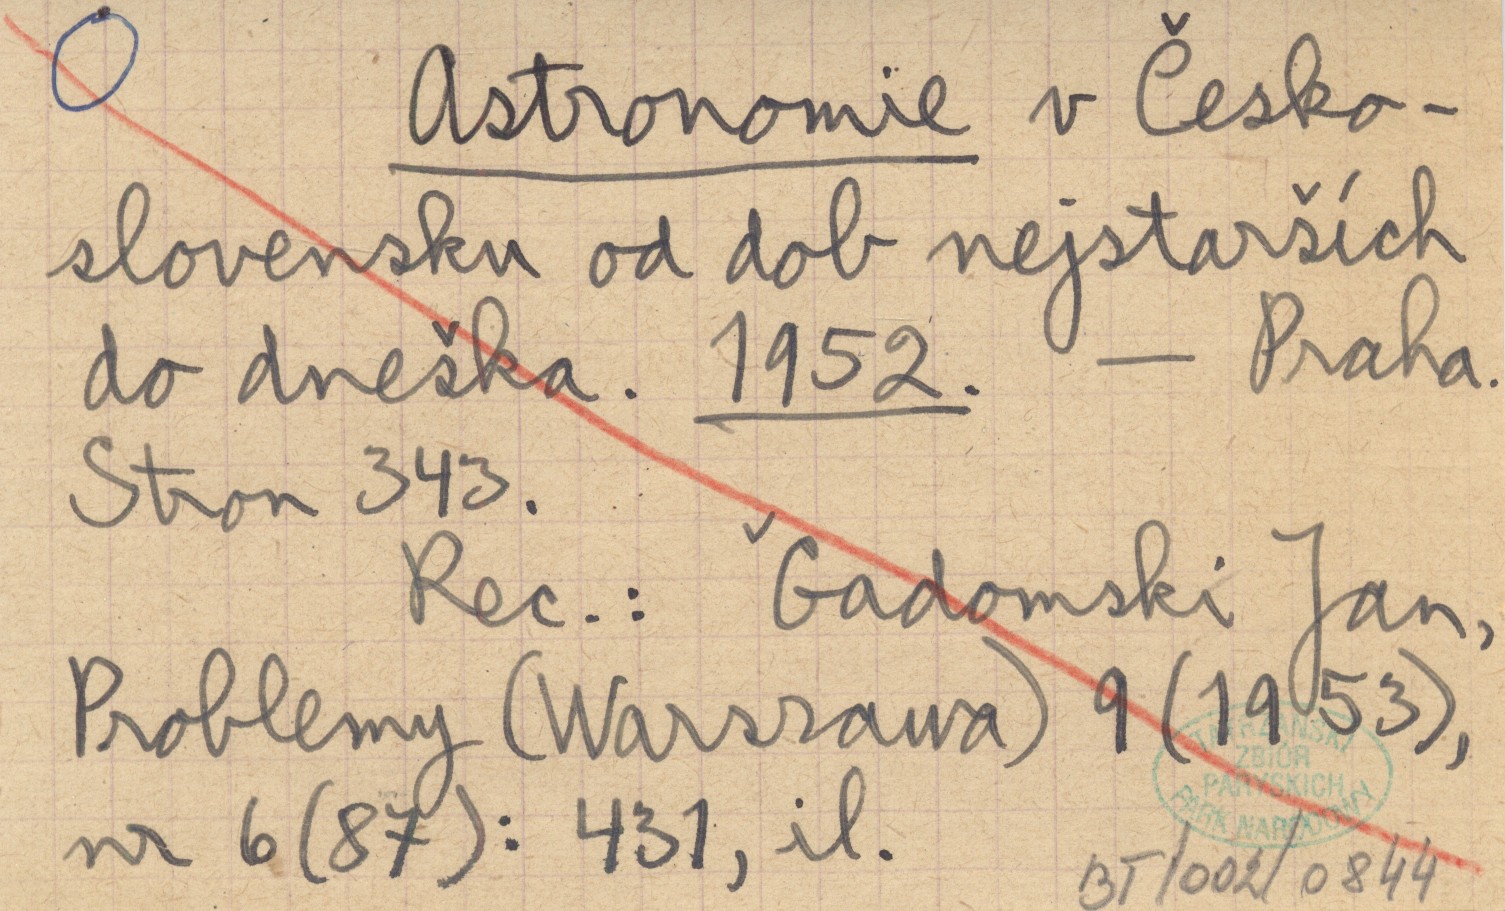 Astronomie v Česko-
slovensku od dob nejstarších
do dneška. 1952. — Praha.
Stron 343.
Rec.: Gadomski Jan,
Problemy (Warszawa) 9 (1953),
nr 6 (87): 431, il.
TATRZAŃSKI
ZBIÓR
PARYSKICH
PARK NARODOWY
BT/002/0844